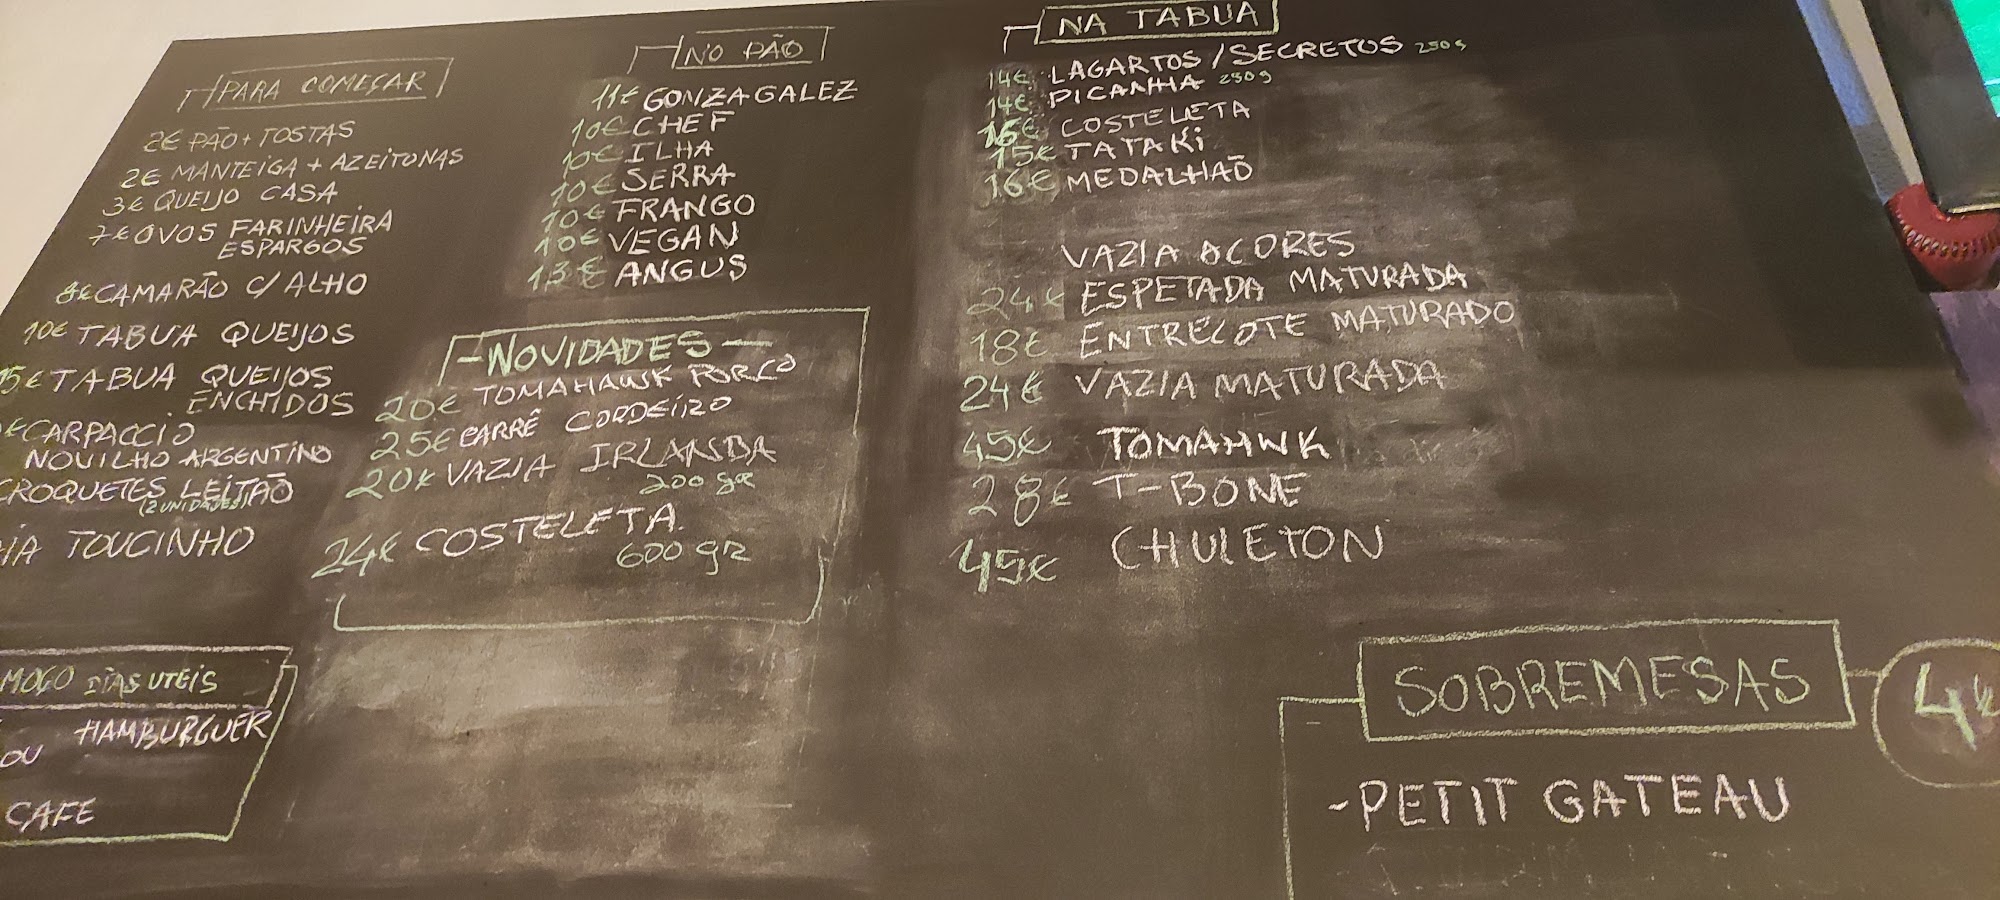 PARA COMEÇAR
2€ PÃO + TOSTAS
2€ MANTEIGA + AZEITONAS
3€ QUEIJO CASA
7€ OVOS FARINHEIRA
ESPARGOS
8€ CAMARÃO C/ ALHO
10€ TABUA QUEIJOS
15€ TABUA QUEIJOS
ENCHIDOS
€ CARPACCIO
NOVILHO ARGENTINO
CROQUETES LEITÃO
(2 UNIDADES)
TOUCINHO
NO PÃO
11€ GONZAGALEZ
10€ CHEF
10€ ILHA
10€ SERRA
10€ FRANGO
10€ VEGAN
13€ ANGUS
NOVIDADES
20€ TOMAHAWK PORCO
25€ CARRÊ CORDEIRO
20€ VAZIA IRLANDA
200 gr
24€ COSTELETA
600 gr
NA TABUA
14€ LAGARTOS/SECRETOS 250g
14€ PICANHA 250g
16€ COSTELETA
15€ TATAKI
16€ MEDALHAÕ
VAZIA ACORES
24€ ESPETADA MATURADA
18€ ENTRECOTE MATURADO
24€ VAZIA MATURADA
45€ TOMAHWK
28€ T-BONE
45€ CHULETON
MOÇO DIAS UTEIS
HAMBURGUER
OU
CAFE
SOBREMESAS 4€
-PETIT GATEAU